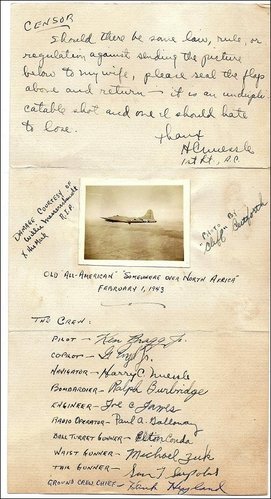 CENSOR
Should there be some law, rule, or
regulation against sending the picture
below to my wife, please seal the flap
above and return - it is an undupli-
catible shot and one I should hate
to lose.
Thanx
HCNuessle
1st Lt., A.C.
DAMAGE COURTESY OF
R.I.P.
"FOTO" BY
"Cliff" Cutforth
OLD ALL-AMERICAN" "SOMEWHERE OVER NORTH AFRICA"
FEBRUARY 1, 1943
THE CREW:
PILOT - Ken Bragg Jr.
COPILOT - G. Engel Jr.
NAVIGATOR - Harry C. Nuessle
BOMBARDIER - Ralph Burbridge
ENGINEER - Joe C. James
RADIO OPERATOR - Paul A. Galloway
BALL TURRET GUNNER - Elton Conda
WAIST GUNNER - Michael Zuk
TAIL GUNNER - Sam T. Sarpolus
GROUND CREW CHIEF - Hank Hyland